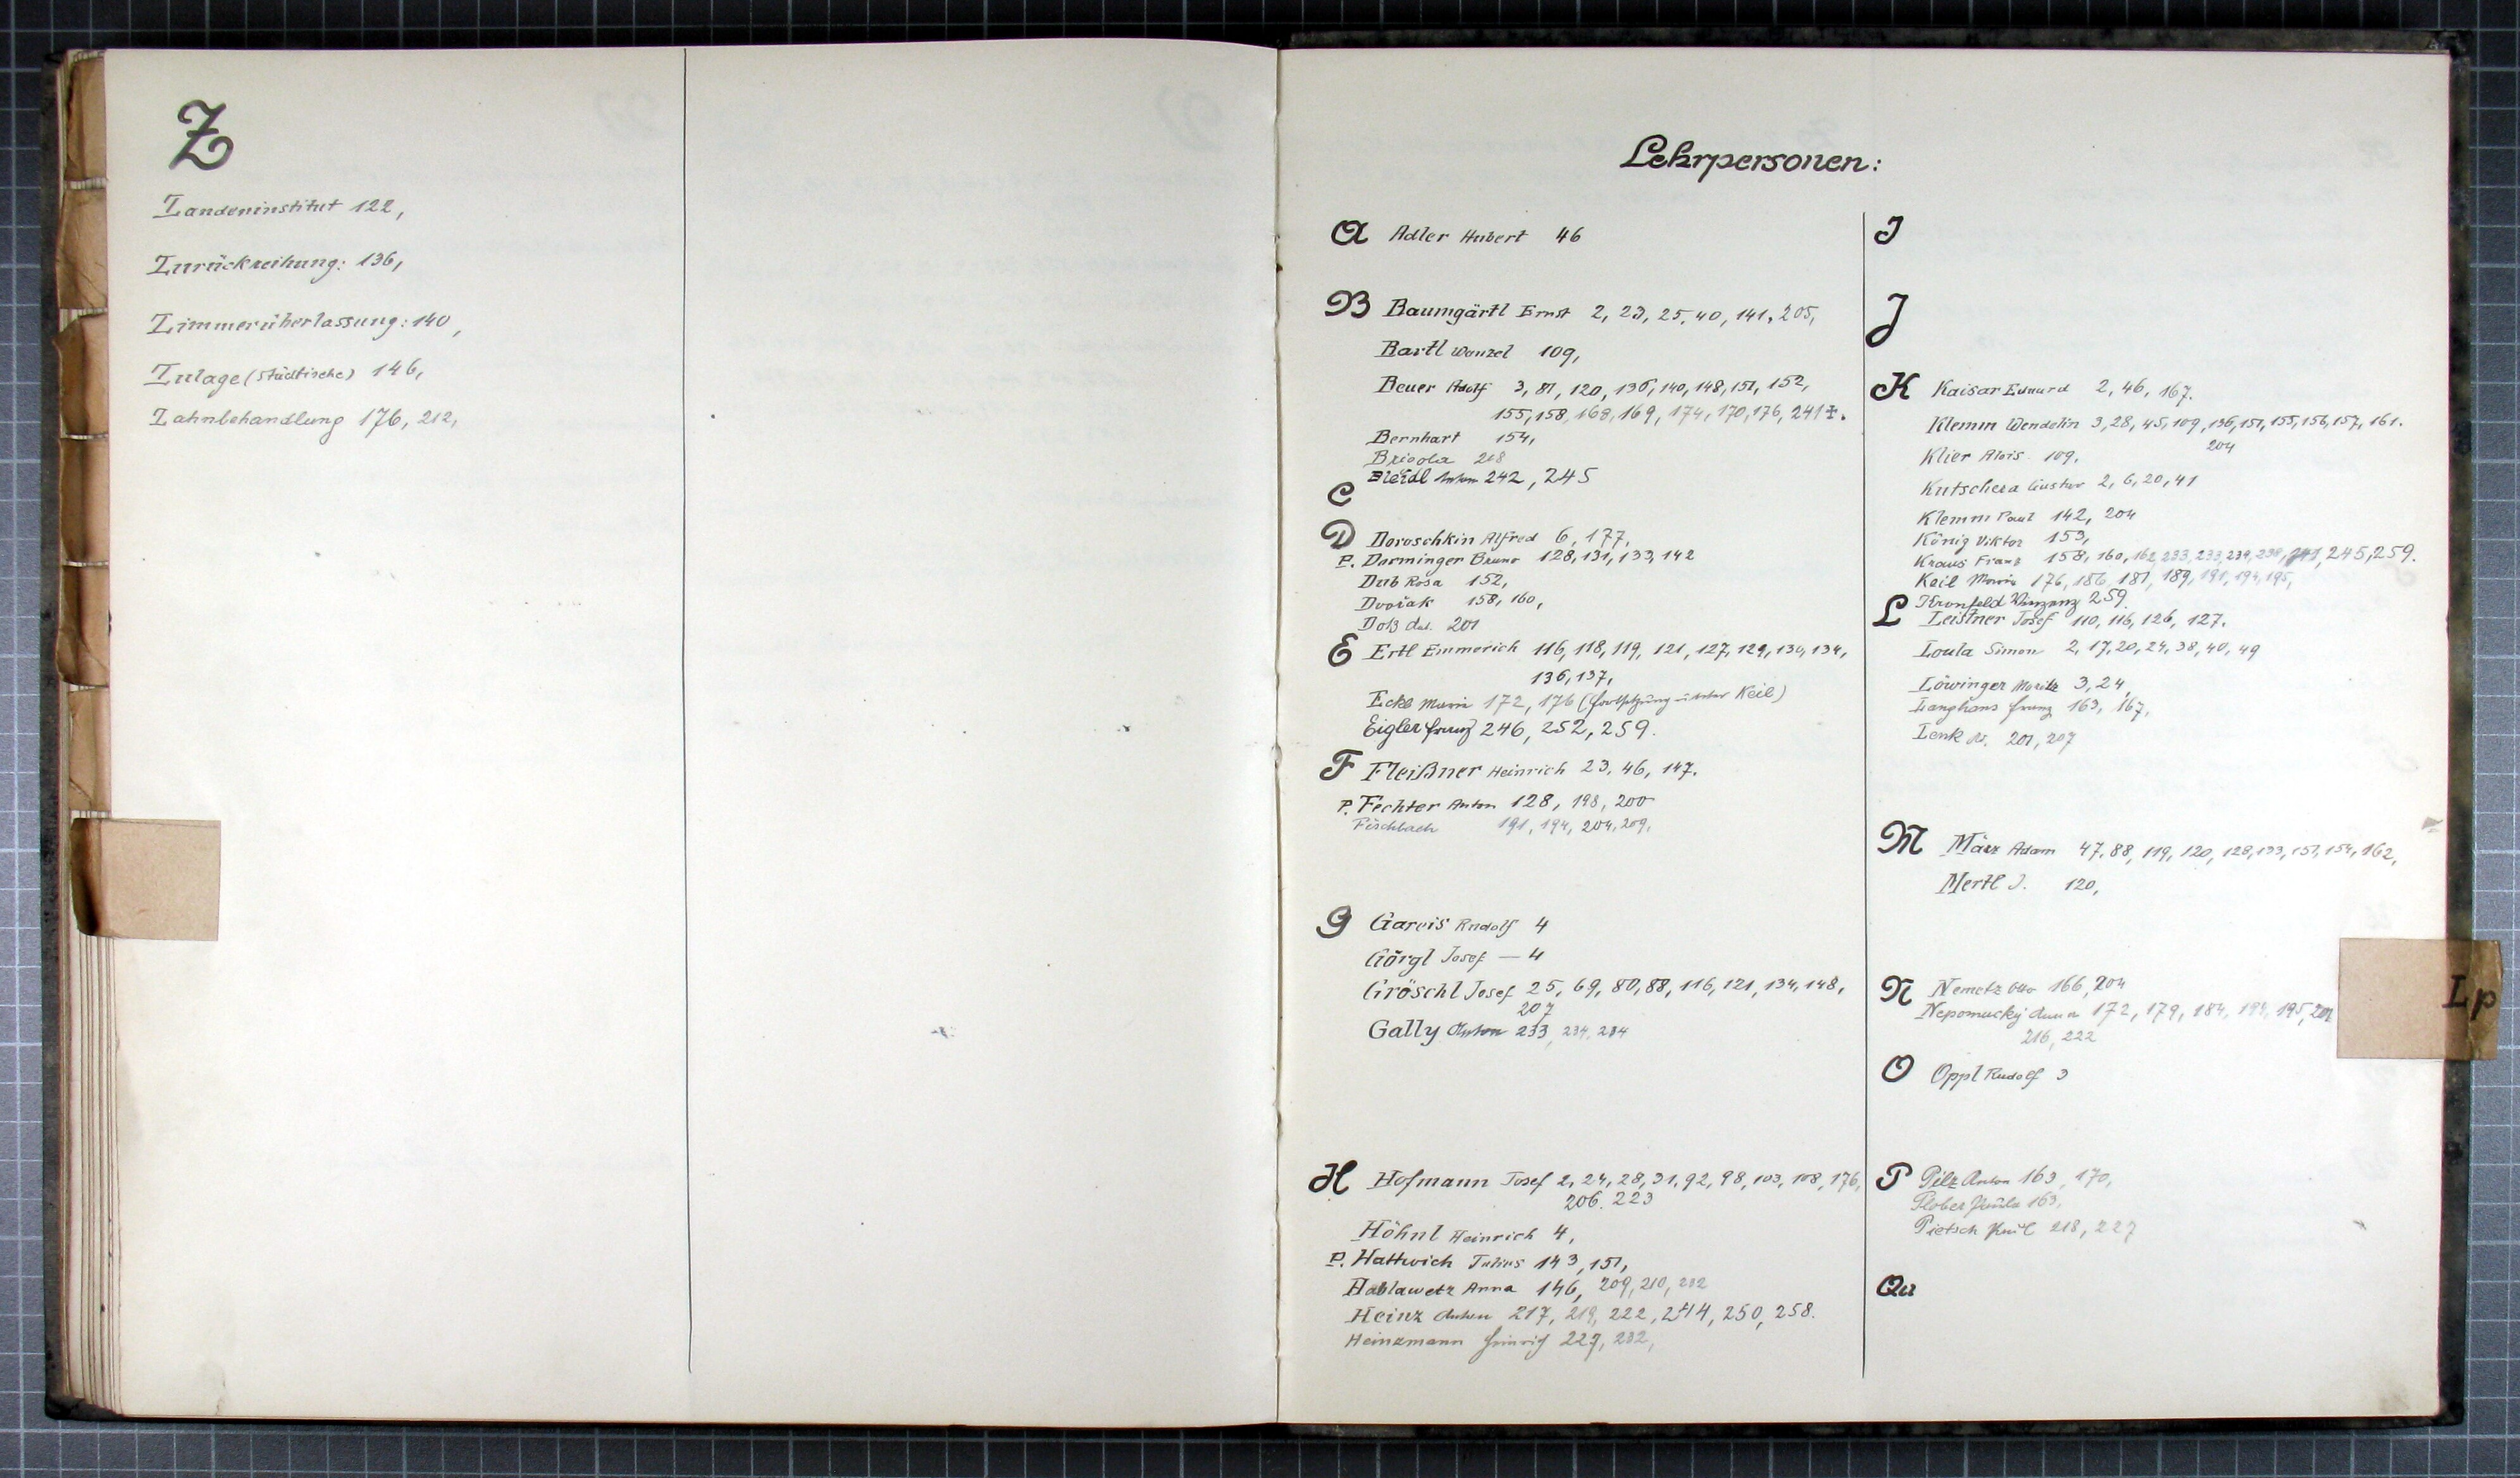 Z
Zandeninstitut 122,
Zurückreihung: 136,
Zimmerüberlassung: 140,
Zulage (städtische) 146,
Zahnbehandlung 176, 212,
Lehrpersonen:
A Adler Hubert 46
B Baumgärtl Ernst 2, 23, 25, 40, 141, 205,
Bartl Wenzel 109,
Beuer Adolf 3, 81, 120, 136, 140, 148, 151, 152,
155, 158, 168, 169, 174, 170, 176, 241 ‡.
Bernhart 154,
Brigola 218
Bleidl Anton 242, 245
C
D Doroschkin Alfred 6, 177,
P. Dorminger Bruno 128, 131, 133, 142
Dub Rosa 152,
Dvořak 158, 160,
Doß 201
E Ertl Emmerich 116, 118, 119, 121, 127, 129, 130, 134,
136, 137,
Eckl Marie 172, 176 (Fortsetzung unter Keil)
Eigler Franz 246, 252, 259.
F Fleißner Heinrich 23, 46, 147.
P. Fechter Anton 128, 198, 200
Fischbach 191, 194, 204, 209,
G Gareis Rudolf 4
Görgl Josef — 4
Gröschl Josef 25, 69, 80, 88, 116, 121, 134, 148,
207
Gally Anton 233, 234, 234
H Hofmann Josef 2, 24, 28, 31, 92, 98, 103, 108, 176,
206. 223
Höhnl Heinrich 4,
P. Hattwich Julius 143, 151,
Hablawetz Anna 146, 209, 210, 232
Heinz Anton 217, 219, 222, 244, 250, 258.
Heinzmann Heinrich 227, 232,
I
J
K Kaisar Eduard 2, 46, 167.
Klemm Wendelin 3, 28, 45, 109, 136, 151, 155, 156, 157, 161.
204
Klier Alois 109,
Kutschera Gustav 2, 6, 20, 41
Klemm Paul 142, 204
König Viktor 153,
Kraus Franz 158, 160, 162, 233, 233, 234, 238, 241, 245, 259.
Keil Marie 176, 186, 187, 189, 191, 194, 195,
Kronfeld Vinzenz 259.
L Leistner Josef 110, 116, 126, 127.
Loula Simon 2, 17, 20, 24, 38, 40, 49
Löwinger Moritz 3, 24,
Langhans Franz 163, 167,
Lenk 201, 207
M März Adam 47, 88, 119, 120, 128, 133, 151, 154, 162,
Mertl J. 120,
N Nemetz Otto 166, 204
Nepomucky Anna 172, 179, 184, 194, 195, 201
216, 222
Lp
O Oppl Rudolf 3
P Pilz Anton 163, 170,
Plober Paula 163,
Pietsch Paul 218, 227
Qu